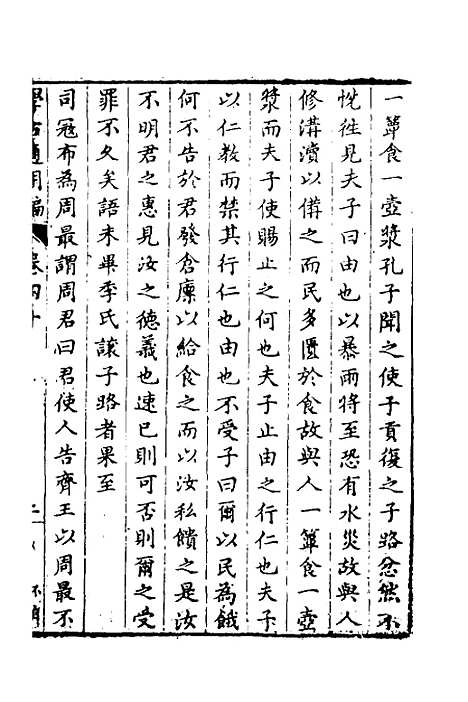 一簞食一壺漿孔子聞之使子貢復之子路忿然不
恱徃見夫子曰由也以暴雨將至恐有水災故與人
修溝瀆以備之而民多匱於食故與人一簞食一壺
漿而夫子使賜止之何也夫子止由之行仁也夫子
以仁教而禁其行仁也由也不受子曰爾以民為餓
何不告於君發倉廩以給食之而以汝私饋之是汝
不明君之惠見汝之德義也速已則可否則爾之受
罪不久矣語未畢季氏讓子路者果至
司寇布為周最謂周君曰君使人告齊王以周最不
學古適用編
卷四十